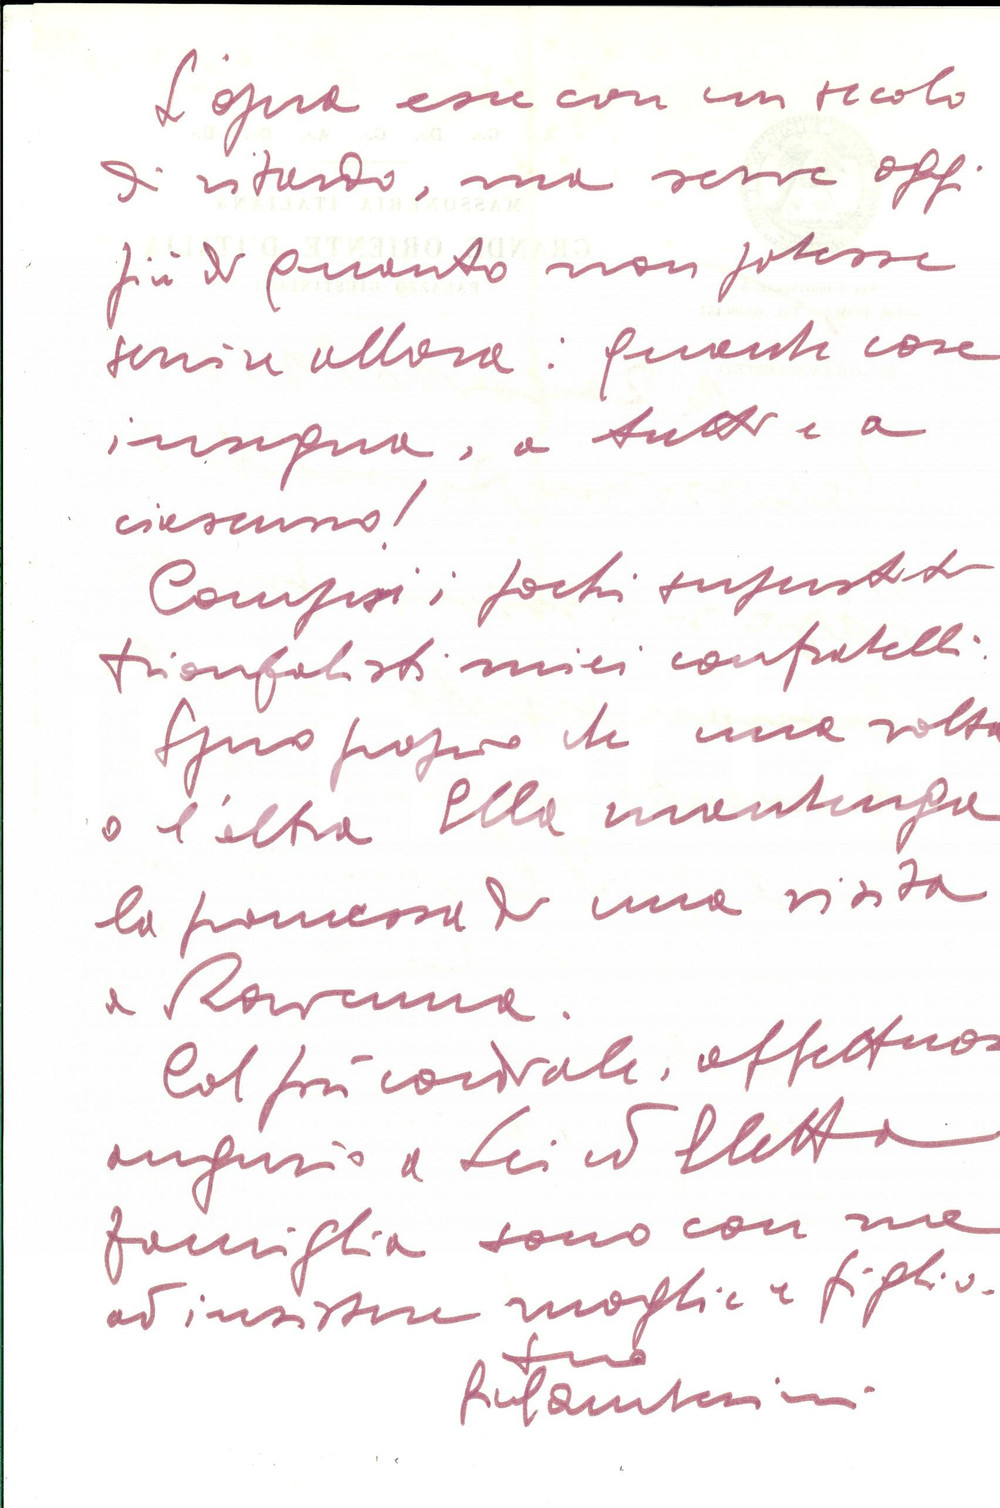 L'opera esce con un secolo
di ritardo, ma serve oggi
più di quanto non potesse
servire allora: quante cose
insegna, a tutti e a
ciascuno!
Compresi i pochi superstiti
trionfalisti miei confratelli.
Spero proprio che una volta
o l'altra Ella mantenga
la promessa di una visita
a Ravenna.
Col più cordiale, affettuoso
augurio a Lei ed Eletta
famiglia sono con me
ad insistere moglie e figlio.
Suo
MASSONERIA ITALIANA
GRANDE ORIENTE D'ITALIA
PALAZZO GIUSTINIANI